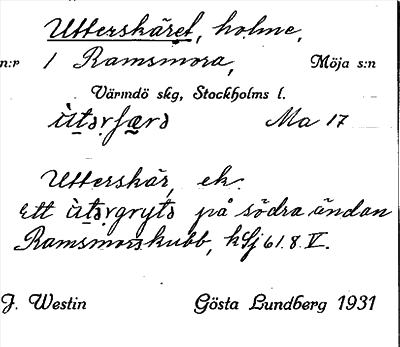 Utterskäret, holme,
n:r 1 Ramsmora, Möja s:n
Värmdö skg, Stockholms l.
Ma 17
Utterskär, ek.
Ett på södra ändan
Ramsmorskubb, kSj 61.8.V.
J. Westin Gösta Lundberg 1931